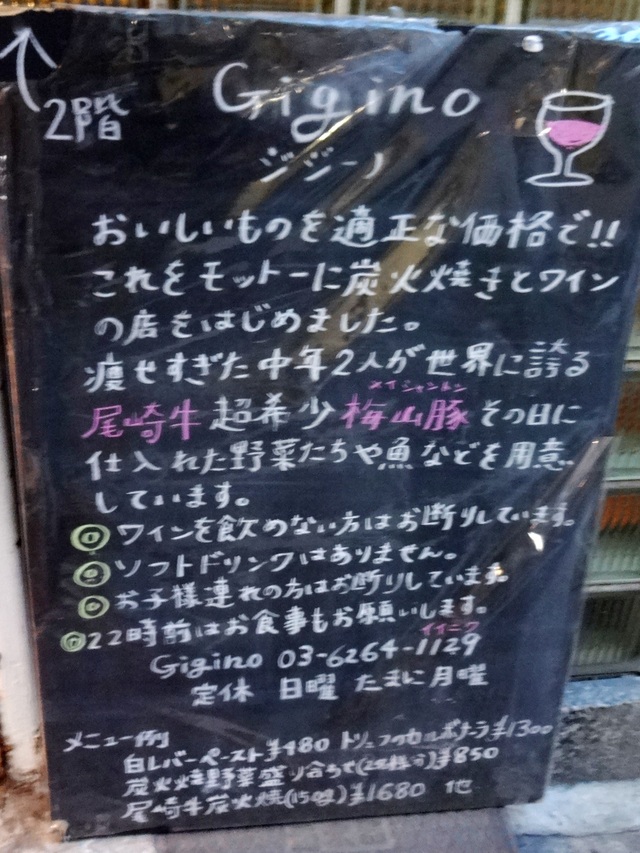 2階
Gigino
ジジーノ
おいしいものを適正な価格で!!
これをモットーに炭火焼きとワイン
の店をはじめました。
痩せすぎた中年2人が世界に誇る
メイシャントン
尾崎牛超希少梅山豚その日に
仕入れた野菜たちや魚などを用意
しています。
◎ワインを飲めない方はお断りしています。
◎ソフトドリンクはありません。
◎お子様連れの方はお断りしています。
◎22時前はお食事もお願いします。
イイニク
Gigino 03-6264-1129
定休 日曜 たまに月曜
メニュー例
白レバーペースト¥480 トリュフのカルボナーラ¥1300
炭火焼野菜盛り合わせ ¥850
尾崎牛炭火焼(150g)¥1680 他